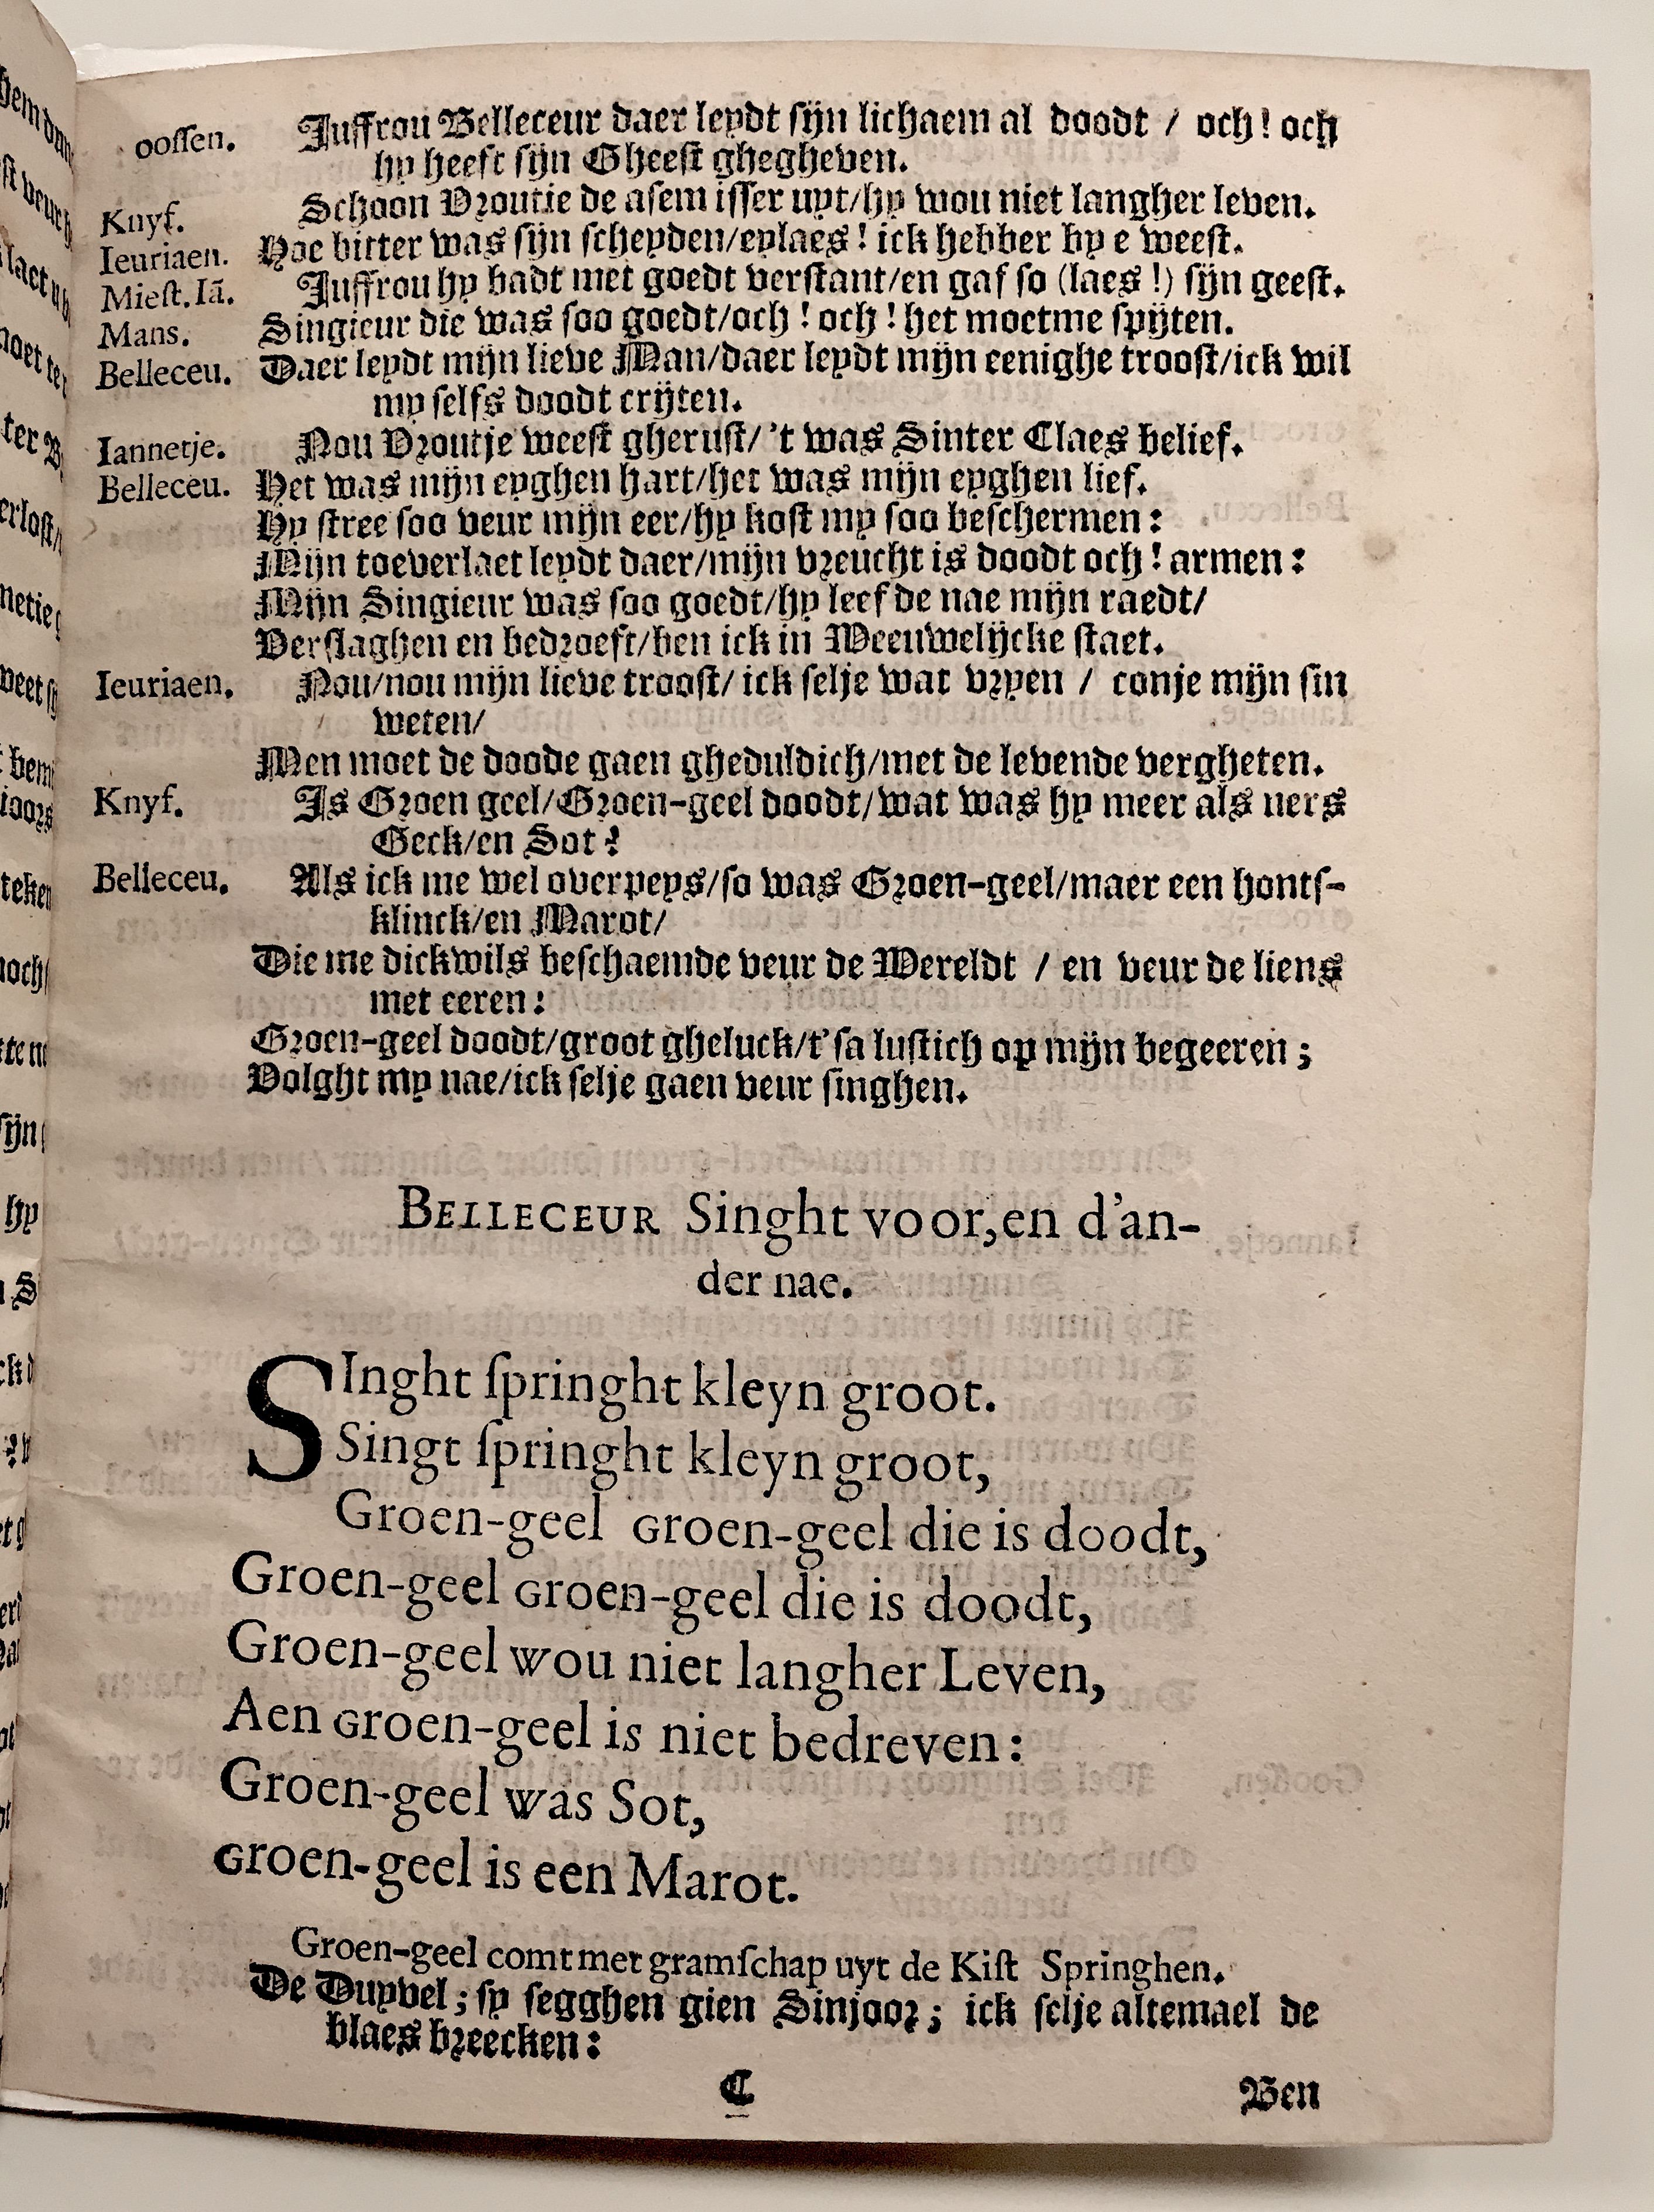 oossen. Juffrou Belleceur daer leydt sijn lichaem al doodt / och! och
hy heeft sijn Gheest ghegheven.
Knyf. Schoon Vroutie de asem isser uyt/hy wou niet langher leven.
Ieuriaen. Hoe bitter was sijn scheyden/eylaes! ick hebber by e weest.
Miest. Iã. Juffrou hy badt met goedt verstant/en gaf so (laes!) sijn geest.
Mans. Singieur die was soo goedt/och! och! het moetme spijten.
Belleceu. Daer leydt mijn lieve Man/daer leydt mijn eenighe troost/ick wil
my selfs doodt crijten.
Iannetje. Nou Vroutje weest gherust/'t was Sinter Claes belief.
Belleceu. Het was mijn eyghen hart/het was mijn eyghen lief.
Hy stree soo veur mijn eer/hy kost my soo beschermen:
Mijn toeverlaet leydt daer/mijn vreucht is doodt och! armen:
Mijn Singieur was soo goedt/hy leef de nae mijn raedt/
Verslaghen en bedroeft/ben ick in Weeuwelijcke staet.
Ieuriaen. Nou/nou mijn lieve troost/ick selje wat vryen / conje mijn sin
weten/
Men moet de doode gaen gheduldich/met de levende vergheten.
Knyf. Is Groen geel/Groen-geel doodt/wat was hy meer als uers
Geck/en Sot?
Belleceu. Als ick me wel overpeys/so was Groen-geel/maer een honts-
klinck/en Marot/
Die me dickwils beschaemde veur de Wereldt / en veur de liens
met eeren:
Groen-geel doodt/groot gheluck/t'sa lustich op mijn begeeren;
Volght my nae/ick selje gaen veur singhen.
BELLECEUR Singht voor, en d'an-
der nae.
SInght springht kleyn groot.
Singt springht kleyn groot,
Groen-geel Groen-geel die is doodt,
Groen-geel Groen-geel die is doodt,
Groen-geel wou niet langher Leven,
Aen Groen-geel is niet bedreven:
Groen-geel was Sot,
Groen-geel is een Marot.
Groen-geel comt met gramschap uyt de Kist Springhen.
De Duyvel; sy segghen gien Sinjoor; ick selje altemael de
blaes breecken:
C
Ben